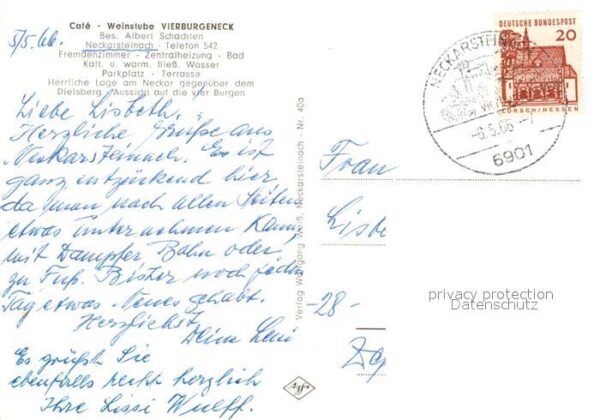 Café · Weinstube VIERBURGENECK
Bes. Albert Schachten
Neckarsteinach · Telefon 542
Fremdenzimmer · Zentralheizung · Bad
Kalt. u. warm. fließ. Wasser
Parkplatz · Terrasse
Herrliche Lage am Neckar gegenüber dem
Dielsberg. Aussicht auf die vier Burgen
5/5.66.
Liebe Lisbeth,
Herzliche Grüße aus
Neckarsteinach. Es ist
ganz entzückend hier
da man nach allen Seiten
etwas unternehmen kann,
mit Dampfer Bahn oder
zu Fuß. Bister noch jeden
Tag etwas Neues gehabt.
Herzlichst
Deine Leni
Es grüßt Sie
ebenfalls recht herzlich
Ihre Lissi Wulff.
Verlag Wolfgang Weiß, Neckarsteinach · Nr. 40a
Agfa
DEUTSCHE BUNDESPOST
20
LORSCH/HESSEN
NECKARSTEINACH
-6.5.66
6901
Frau
Lisbe
-28-
privacy protection
Datenschutz